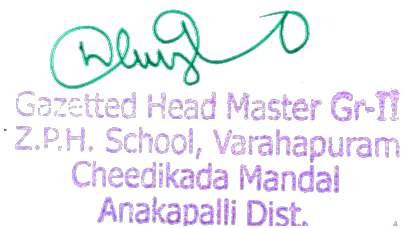 Gazetted Head Master Gr-II
Z.P.H. School, Varahapuram
Cheedikada Mandal
Anakapalli Dist.